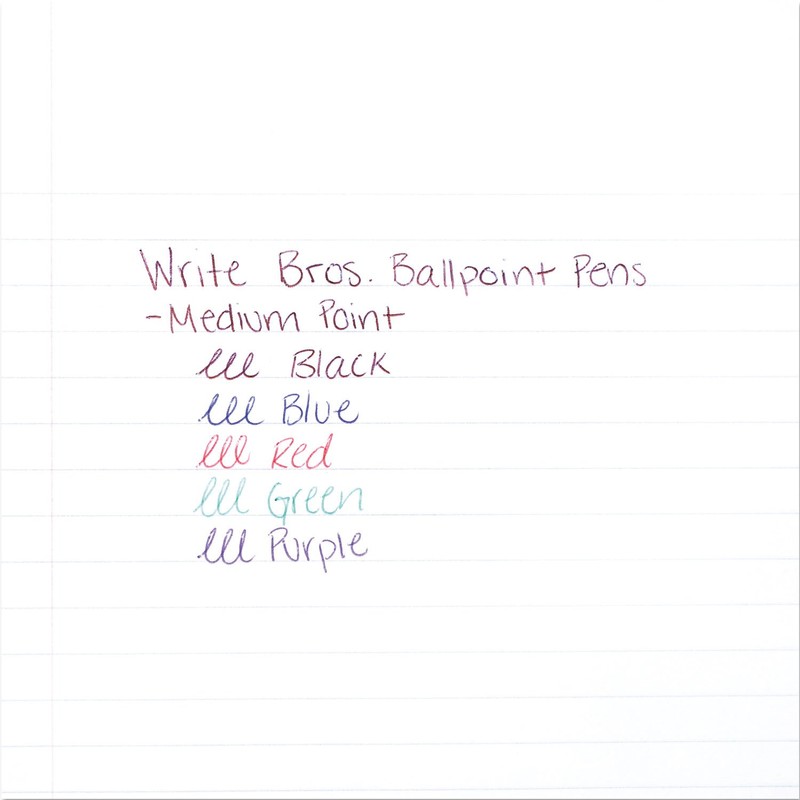 Write Bros. Ballpoint Pens
-Medium Point
lll Black
lll Blue
lll Red
lll Green
lll Purple